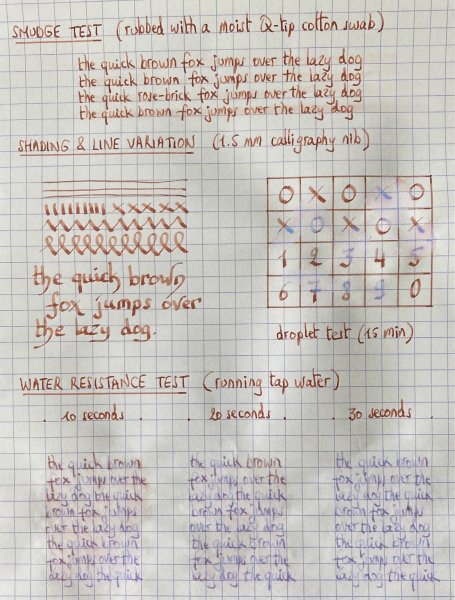 SMUDGE TEST (rubbed with a moist Q-tip cotton swab)
the quick brown fox jumps over the lazy dog
the quick brown fox jumps over the lazy dog
the quick rose-brick fox jumps over the lazy dog
the quick brown fox jumps over the lazy dog
SHADING & LINE VARIATION (1.5 mm calligraphy nib)
the quick brown
fox jumps over
the lazy dog.
O X O X O
X O X O X
1 2 3 4 5
6 7 8 9 0
droplet test (15 min)
WATER RESISTANCE TEST (running tap water)
10 seconds . . 20 seconds . . 30 seconds .
the quick brown
fox jumps over the
lazy dog the quick
brown fox jumps
over the lazy dog
the quick brown
fox jumps over the
lazy dog the quick
the quick brown
fox jumps over the
lazy dog the quick
brown fox jumps
over the lazy dog
the quick brown
fox jumps over the
lazy dog the quick
the quick brown
fox jumps over the
lazy dog the quick
brown fox jumps
over the lazy dog
the quick brown
fox jumps over the
lazy dog the quick